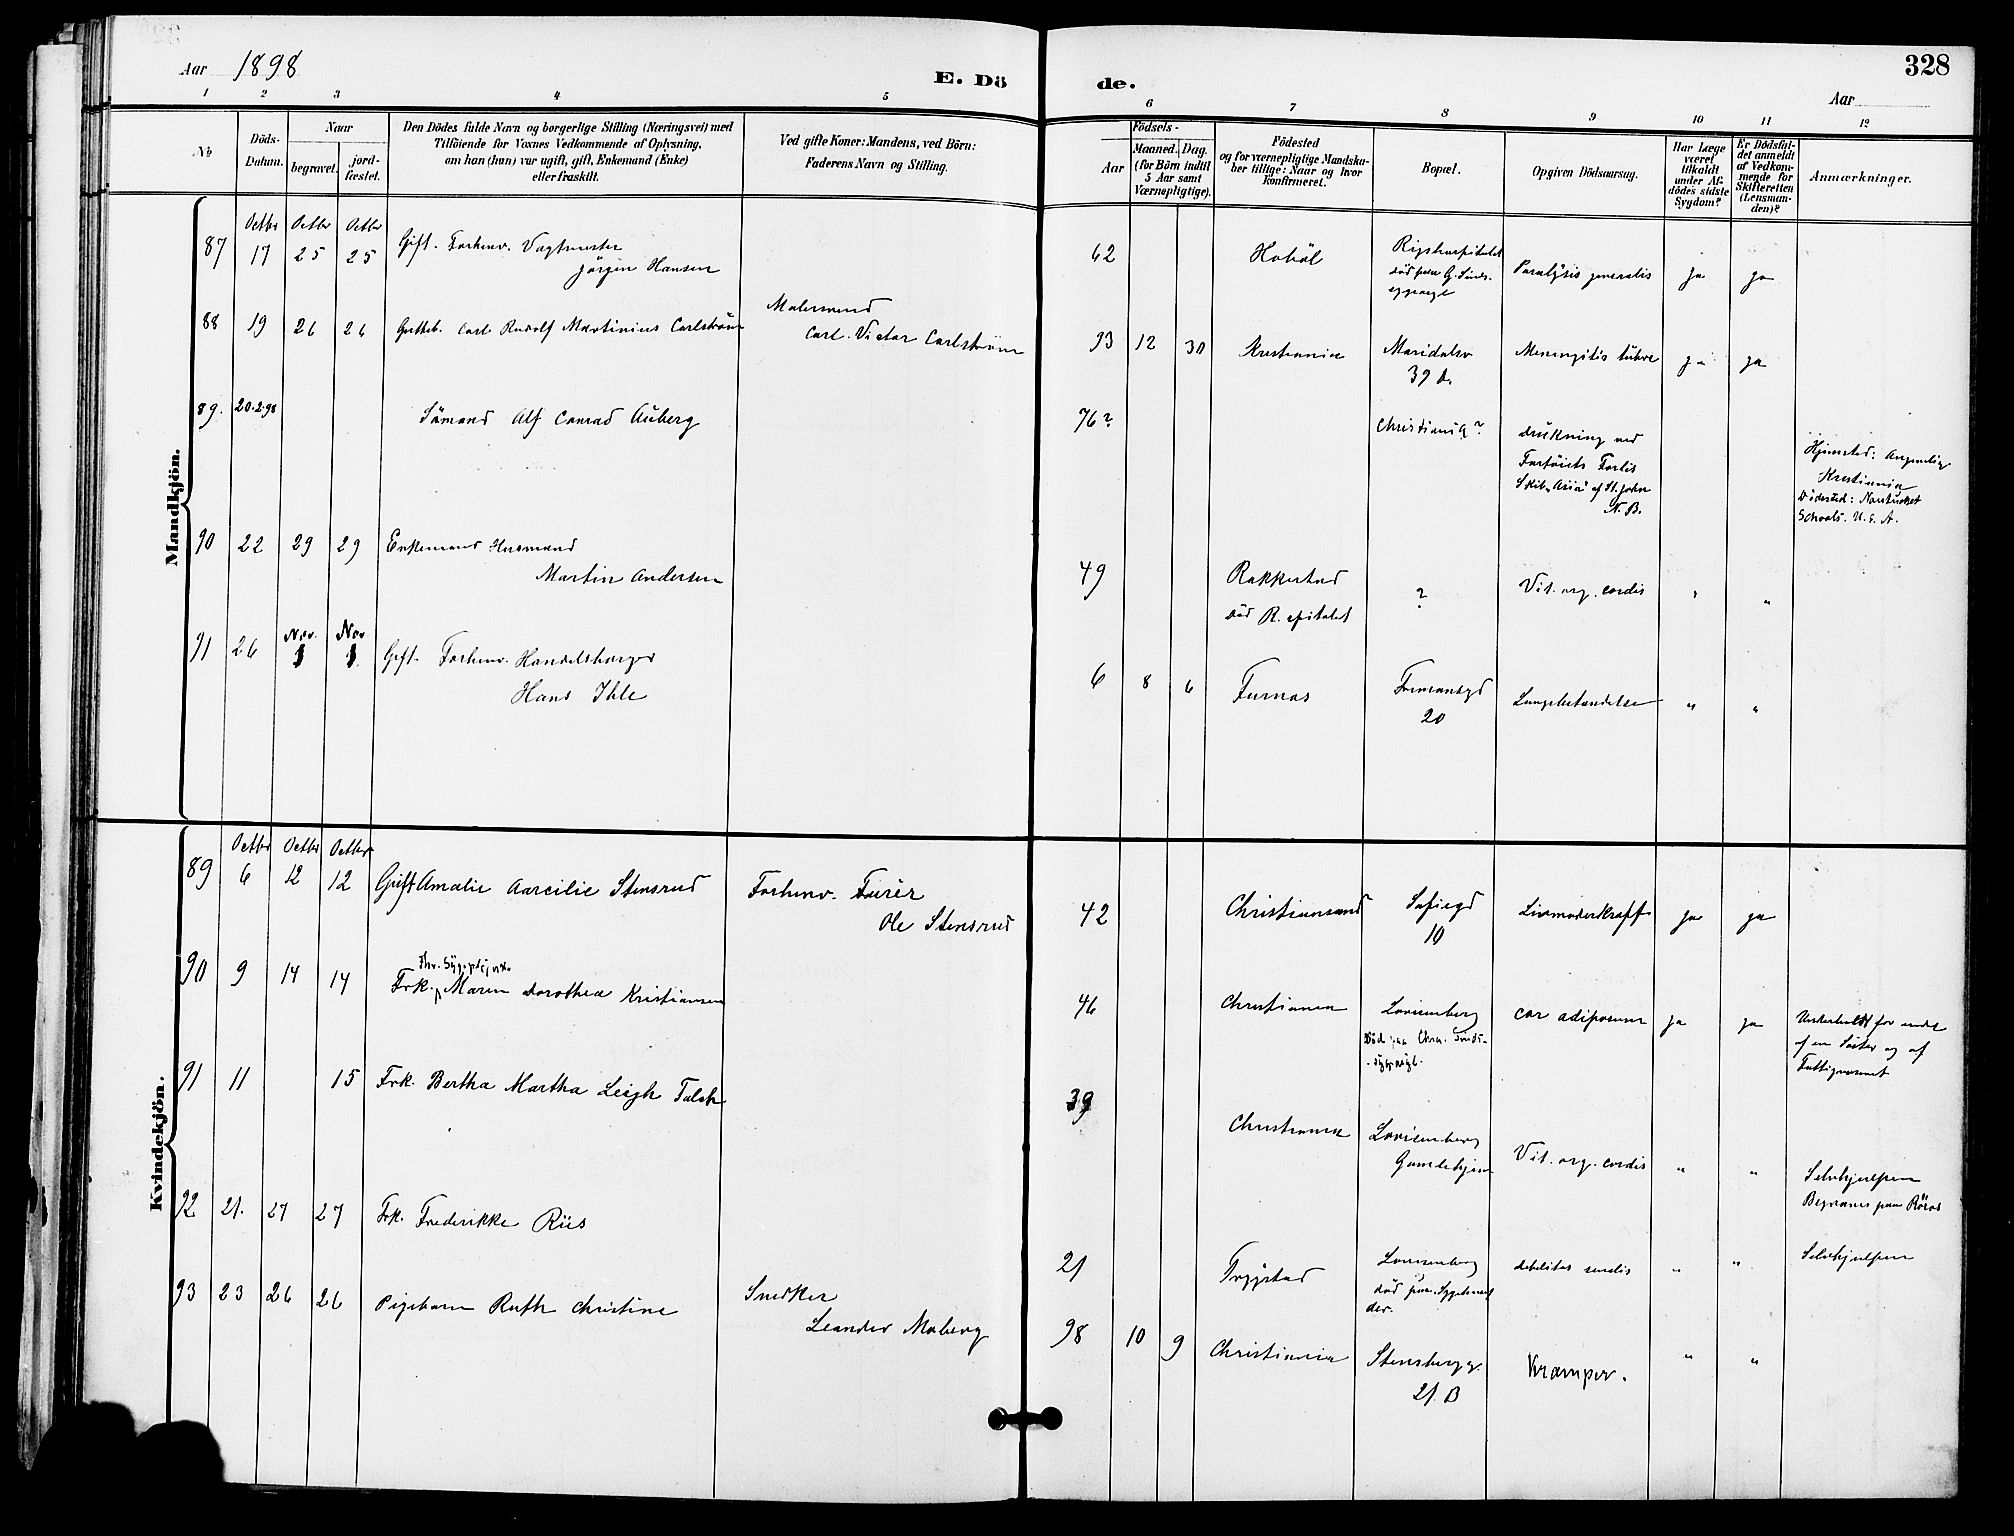 Aar 1898
E. Dö
de.
328
Aar
1 2 3 4 5 6 7 8 9 10 11 12
№
Döds-
Datum.
Naar
begravet.
jord-
fæstet.
Den Dödes fulde Navn og borgerlige Stilling (Næringsvei) med
Tilföiende for Voxnes Vedkommende af Oplysning,
om han (hun) var ugift, gift, Enkemand (Enke)
eller fraskilt.
Ved gifte Koner: Mandens, ved Börn:
Faderens Navn og Stilling.
Födsels-
Aar
Maaned. Dag.
(for Börn indtil
5 Aar samt
Værnepligtige).
Födested
og for værnepligtige Mandska-
ber tillige: Naar og hvor
konfirmeret.
Bopæl.
Opgiven Dödsaarsag.
Har Læge
været
tilkaldt
under Af-
dödes sidste
Sygdom?
Er Dödsfal-
det anmeldt
af Vedkom-
mende for
Skifteretten
(Lensman-
den)?
Anmærkninger.
Mandkjön.
Octbr Octbr Octbr
87 17 25 25 Gift. Forhenv. Vagtmester
Jörgen Hansen
62 Hoböl Rigshospitalet
död paa G. Sinds-
sygeasyl
Paralysis generalis ja ja
88 19 26 26 Gutteb. Carl Rudolf Martinius Carlström
Malersvend
Carl Victor Carlström
93 12 30 Kristiania Maridalsv
39 d.
Meningitis tuberc ja ja
89. 20.2.98 Sömand Alf Conrad Auberg
76? Christiania?
drukning ved
Fartöiets Forlis
Skib "Asia" af St. John
N. B.
Hjemsted: Angivelig
Kristiania
Dödssted: Nantucket
Schoals. U. S. A.
90 22 29 29 Enkemand Husmand
Martin Andersen
49 Rakkestad
död R.spitalet
? Vit. org. cordis " "
91 26 Nov. 1 Nov. 1. Gift. Forhenv. Handelsborger
Hans Ihle
6 8 6 Furnas
20
Lungebetændelse " "
Kvindekjön.
Octbr Octbr Octbr
89 6 12 12 Gift Amalie Aarcilie Stensrud
Forhenv. Furér
Ole Stensrud
42 Christiansand Sofiegd
10
Livmoderkræft ja ja
90 9 14 14 Frk. Maren Dorothea Kristiansen
46 Christiania Lovisenberg
Död paa Chra. Sinds-
sygeasyl.
cor adiposum ja ja
Underholdt for endel
af en Söster og af
Fattigvæsenet
91 11 15 Frk. Bertha Martha Leigh Falch
39 Christiania Lovisenberg
Gamlehjem
Vit. org. cordis " "
Selvhjulpen
Begraves paa Röros
92 21. 27 27 Frk. Frederikke Riis
21 Trygstad Lovisenberg
debilitas senilis " "
Selvhjulpen
93 23 26 26 Pigebarn Ruth Christine
Snedker
Leander Moberg
98 10 9 Christiania Stensbergg.
21. B
Kramper. " "